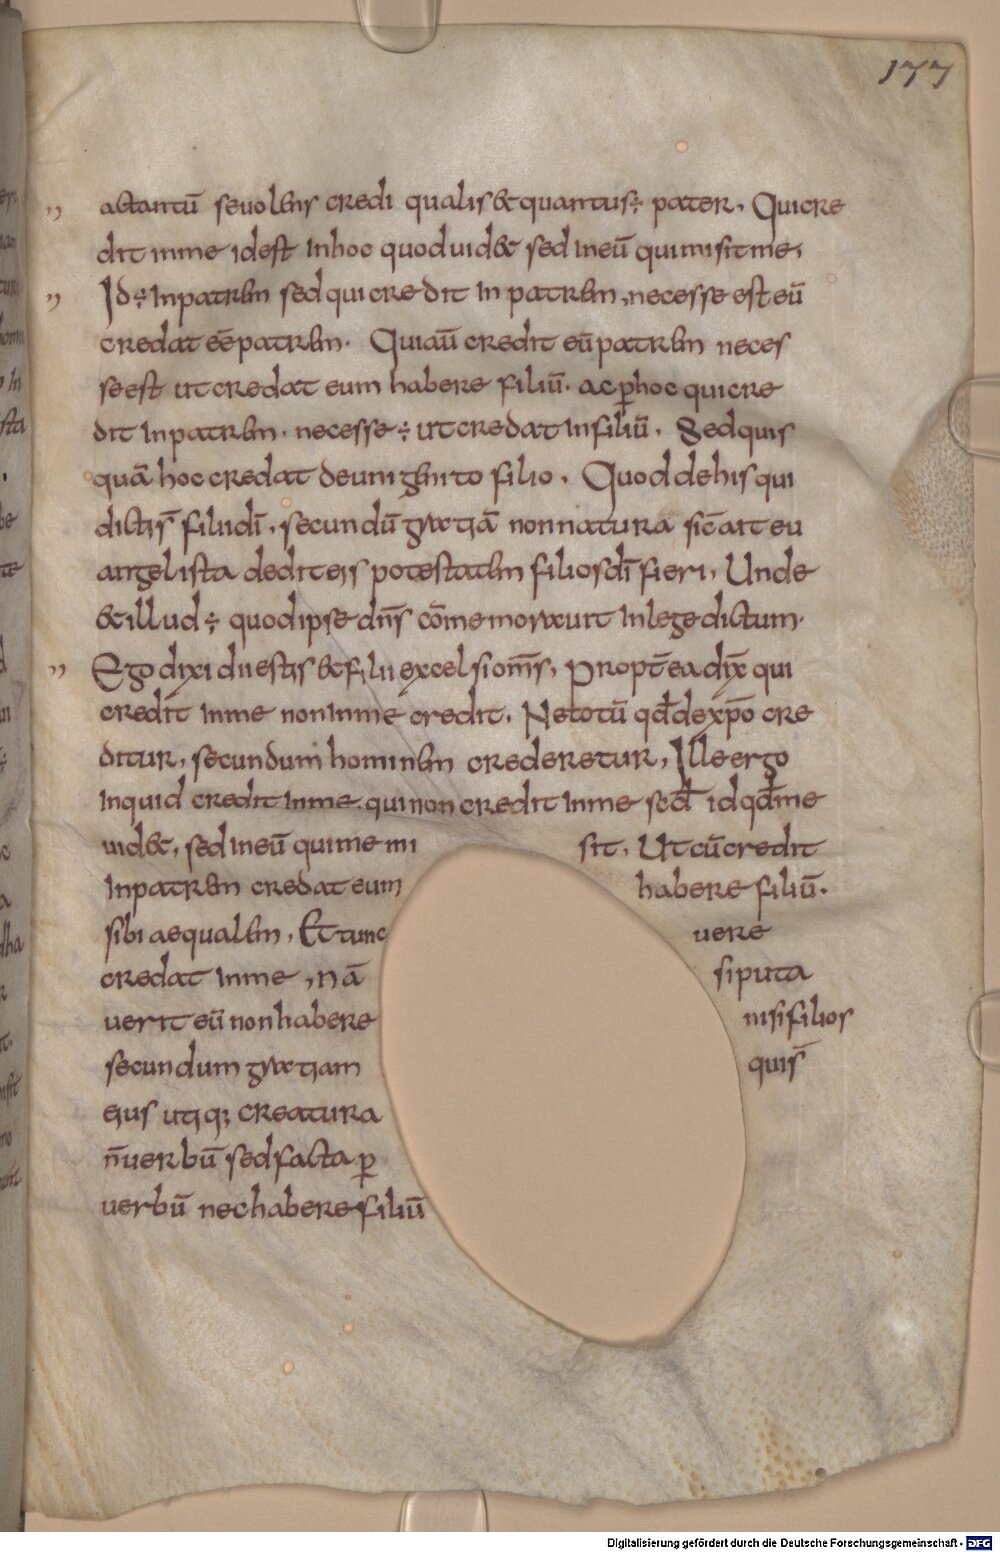 177
actantū se uolens credi qualis & quantus ÷ pater. Qui cre
dit in me id est in hoc quod uid& sed in eū qui misit me,
Id ÷ in patrem sed qui credit in patrem, necesse est eū
credat eē patrem. Qui aū credit eū patrem neces
se est ut credat eum habere filiū. ac p hoc qui cre
dit in patrem. necesse ÷ ut credat in filiū. Sed quis
quā hoc credat de unigenito filio. Quod de his qui
dicti s̄ filii dī. secundū gratiā non natura sic̄ ait eu
angelista dedit eis potestatem filios dī fieri. Unde
& illud ÷ quod ipse dn̄s cōmemorauit in lege dictum.
Ego dixi dii estis & filii excelsi om̄s. Propt̄ea dix̄ qui
credit in me non in me credit. Ne totū qd̄ de xp̄o cre
ditur, secundum hominem crederetur, Ille ergo
inquid credit in me. qui non credit in me sc̄d id qd̄ me
uid&, sed in eū qui me mi sit. Ut cū credit
in patrem credat eum habere filiū.
sibi aequalem. Et tunc uere
credat in me, nā si puta
uerit eū non habere nisi filios
secundum gratiam qui s̄
eius utiq; creatura
n̄ uerbū sed facta p
uerbū nec habere filiū
Digitalisierung gefördert durch die Deutsche Forschungsgemeinschaft - DFG